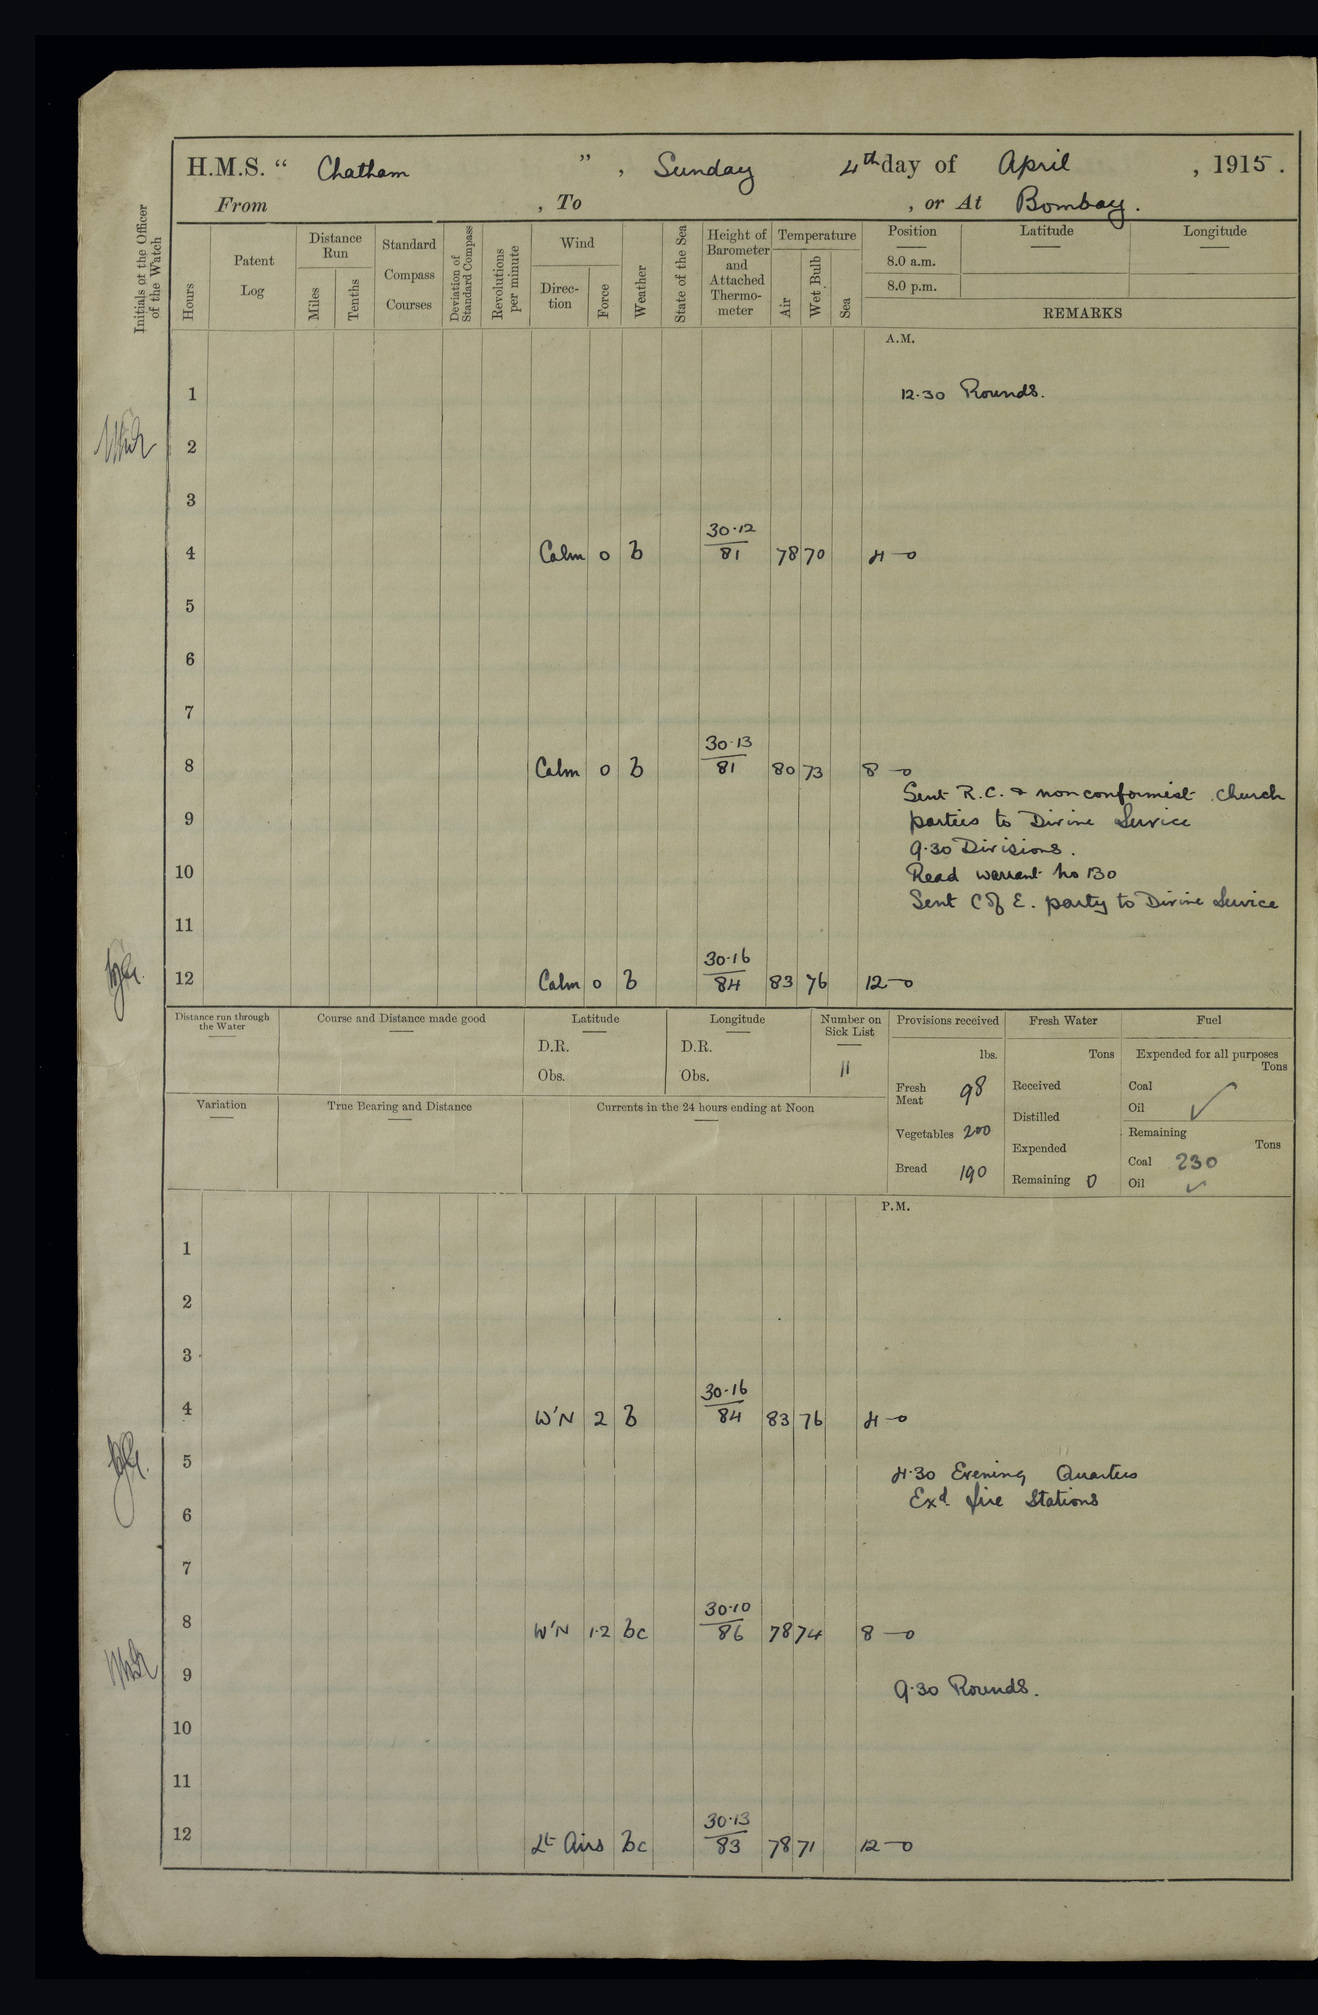 H.M.S. “ Chatham ” , Sunday 4th day of April , 1915 .
From , To , or At Bombay .
Initials of the Officer of the Watch
Hours
Patent Log
Distance Run
Miles
Tenths
Standard Compass Courses
Deviation of Standard Compass
Revolutions per minute
Wind
Direc-tion
Force
Weather
State of the Sea
Height of Barometer and Attached Thermo-meter
Temperature
Air
Wet Bulb
Sea
Position Latitude Longitude
8.0 a.m.
8.0 p.m.
REMARKS
A.M.
1 12.30 Rounds.
2
3
4 Calm 0 b 30.12 / 81 78 70 4—0
5
6
7
8 Calm 0 b 30.13 / 81 80 73 8—0
Sent R.C. & nonconformist church
9 parties to Divine Service
9.30 Divisions.
10 Read warrant No 130
Sent C of E. party to Divine Service
11
12 Calm 0 b 30.16 / 84 83 76 12—0
Distance run through the Water
Course and Distance made good
Latitude
D.R.
Obs.
Longitude
D.R.
Obs.
Number on Sick List
11
Provisions received
lbs.
Fresh Meat 98
Vegetables 200
Bread 190
Fresh Water
Tons
Received
Distilled
Expended
Remaining 0
Fuel
Expended for all purposes
Tons
Coal
Oil ✓
Remaining
Tons
Coal 230
Oil ✓
Variation
True Bearing and Distance
Currents in the 24 hours ending at Noon
P.M.
1
2
3
4 W'N 2 b 30.16 / 84 83 76 4—0
5 4.30 Evening Quarters
Exd. fire Stations
6
7
8 W'N 1.2 bc 30.10 / 86 78 74 8—0
9 9.30 Rounds.
10
11
12 Lt Airs bc 30.13 / 83 78 71 12—0